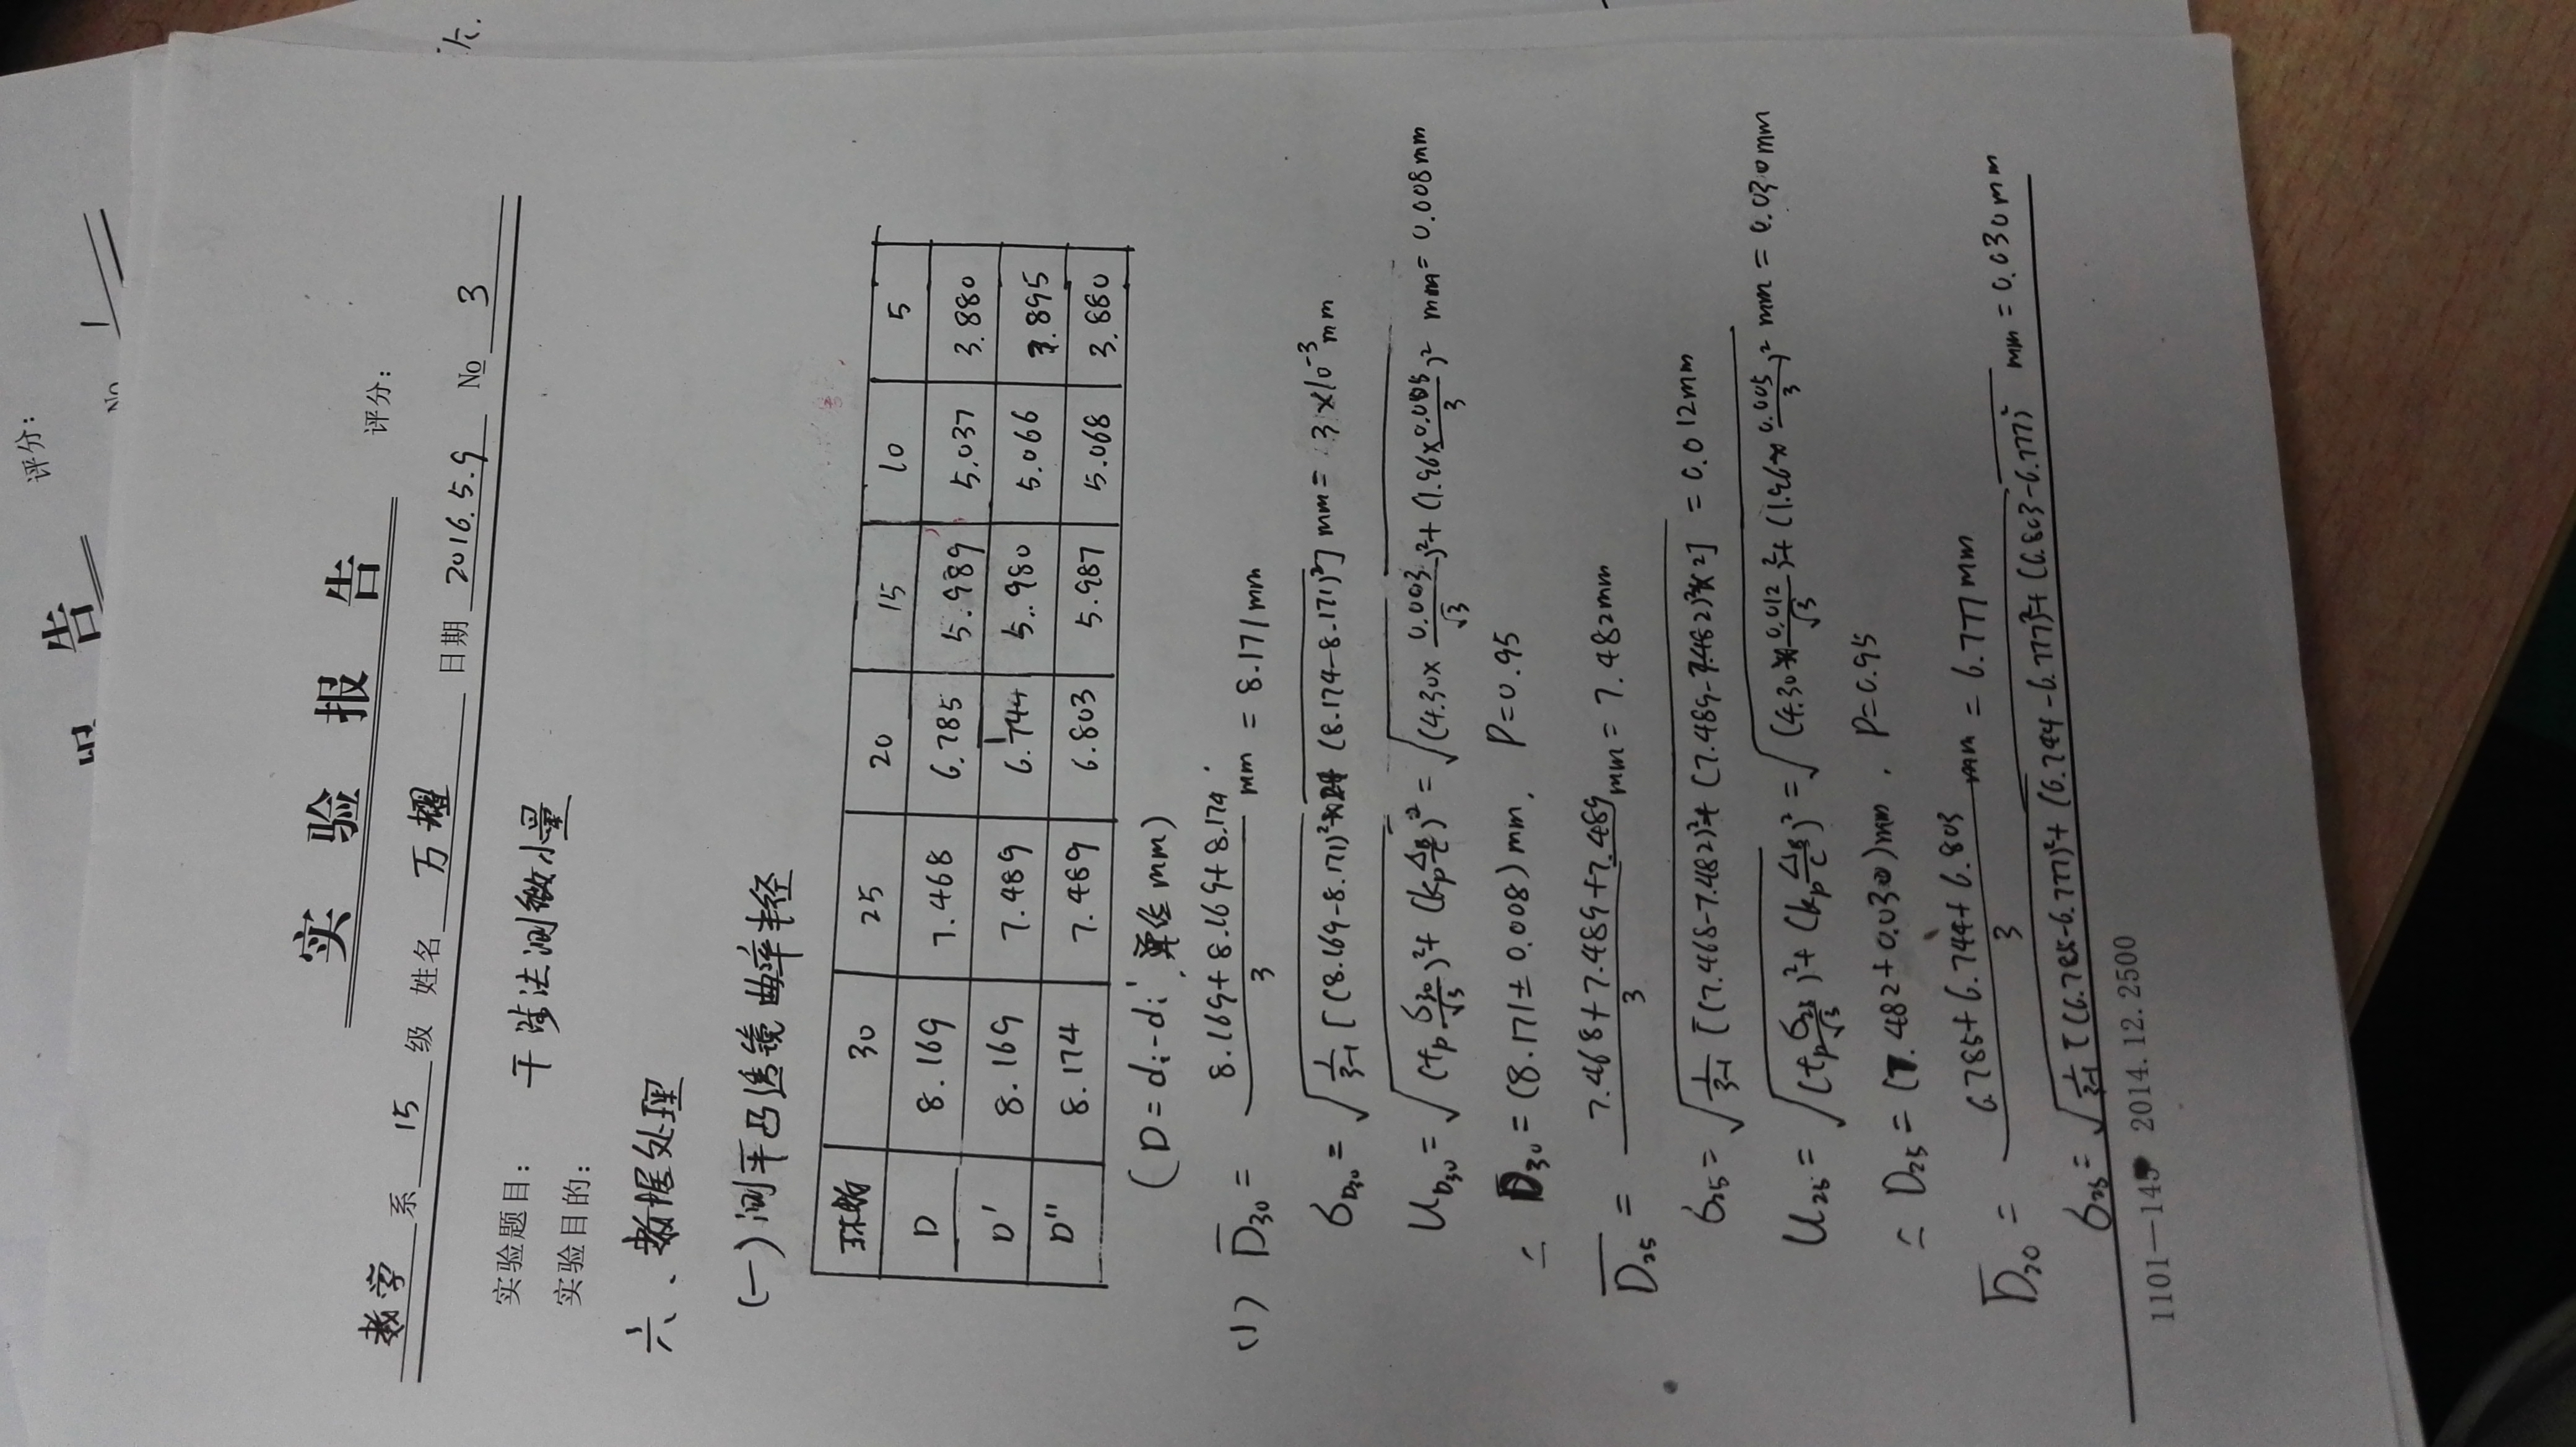 评分:
告
No 1
实 验 报 告
评分:
数学 系 15 级 姓名 万耀 日期 2016.5.9 No 3
实验题目: 干涉法测微小量
实验目的:
六、数据处理
(一)测平凸透镜曲率半径
环数 30 25 20 15 10 5
D 8.169 7.468 6.785 5.989 5.037 3.880
D' 8.169 7.489 6.744 5.980 5.066 3.895
D'' 8.174 7.489 6.803 5.987 5.068 3.880
(D=di-di', 单位mm)
(1) D̅30 = (8.169+8.169+8.174)/3 mm = 8.171mm
σD30 = √(1/(3-1) [(8.169-8.171)²×2+(8.174-8.171)²]) mm = 3×10⁻³mm
UD30 = √((tp σ30/√3)²+(kp ΔB/C)²) = √((4.30×0.003/√3)²+(1.96×0.005/3)²) mm = 0.008mm
∴ D30 = (8.171±0.008)mm, P=0.95
D̅25 = (7.468+7.489+7.489)/3 mm = 7.482mm
σ25 = √(1/(3-1) [(7.468-7.482)²+(7.489-7.482)²×2]) = 0.012mm
U25 = √((tp σ25/√3)²+(kp ΔB/C)²) = √((4.30×0.012/√3)²+(1.96×0.005/3)²) mm = 0.030mm
∴ D25 = (7.482+0.030)mm, P=0.95
D̅20 = (6.785+6.744+6.803)/3 mm = 6.777mm
σ25 = √(1/(3-1) [(6.785-6.777)²+(6.744-6.777)²+(6.803-6.777)²) mm = 0.030mm
2014.12.2500